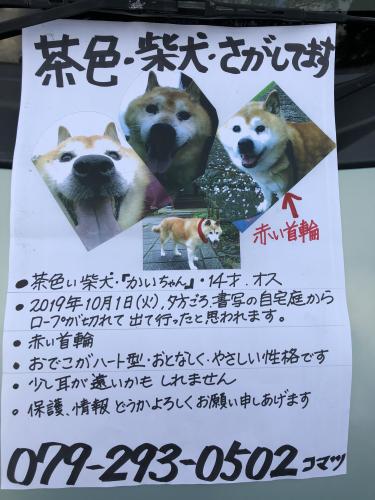 茶色・柴犬・さがしてます
赤い首輪
● 茶色い柴犬・『かいちゃん』・14才.オス
● 2019年10月1日(火)、夕方ごろ.書写の自宅庭から
ロープが切れて出て行ったと思われます。
● 赤い首輪
● おでこがハート型・おとなしく・やさしい性格です
● 少し耳が遠いかもしれません
○ 保護、情報どうかよろしくお願い申しあげます
079-293-0502 コマツ